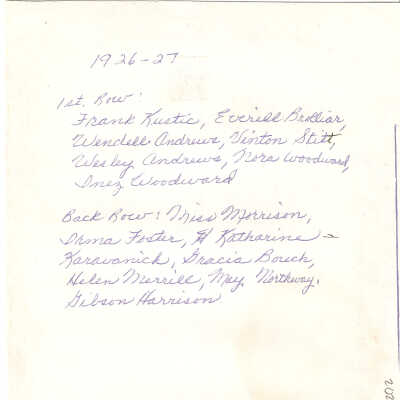 1926-27
1st. Row:
Frank Kustic, Everill Brolliar,
Wendell Andrews, Vinton Stitt,
Wesley Andrews, Nora Woodward,
Inez Woodward
Back Row: Miss Morrison,
Irma Foster, H Katharine -
Karavanich, Gracia Bouch,
Helen Merrill, May Northway.
Gibson Harrison
202